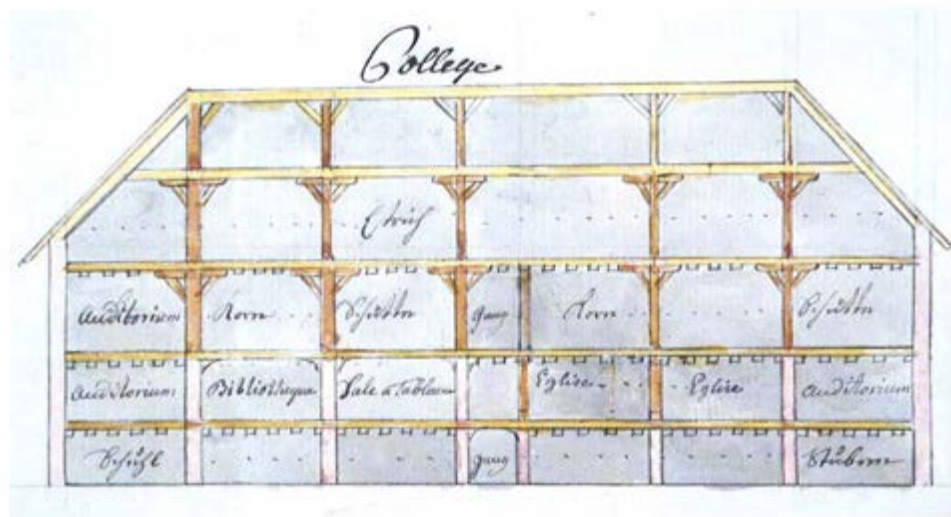 College
Estrich
Auditorium Korn Schütte Gang Korn Schütte
Auditorium Bibliotheque Sale a tableau Eglise Eglise Auditorium
Schuhl Gang Stuben